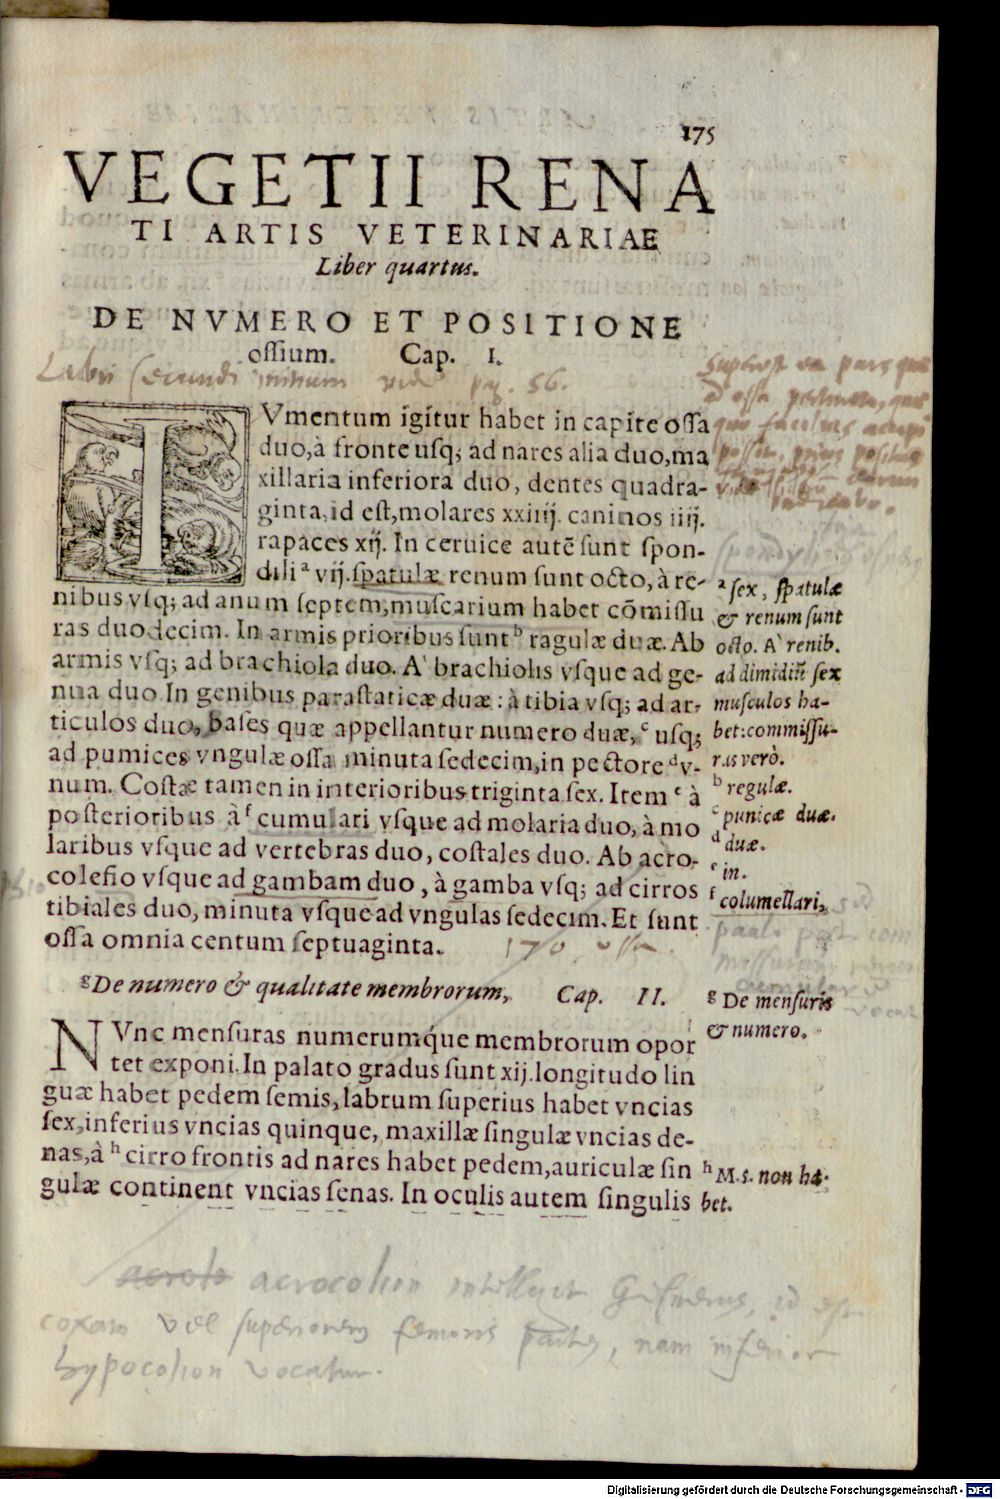 175
VEGETII RENA
TI ARTIS VETERINARIAE
Liber quartus.
DE NVMERO ET POSITIONE
ossium. Cap. I.
Libri secundi initium vide pag. 56.
IVmentum igitur habet in capite ossa
duo, à fronte usq; ad nares alia duo, ma
xillaria inferiora duo, dentes quadra-
ginta, id est, molares xxiiij. caninos iiij.
rapaces xij. In ceruice autē sunt spon-
dili ᵃ vij. spatulæ renum sunt octo, à re-
nibus vsq; ad anum septem, muscarium habet cōmissu
ras duodecim. In armis prioribus sunt ᵇ ragulæ duæ. Ab
armis vsq; ad brachiola duo. A' brachiolis vsque ad ge-
nua duo. In genibus parastaticæ duæ: à tibia vsq; ad ar-
ticulos duo, bases quæ appellantur numero duæ, ᶜ usq;
ad pumices vngulæ ossa minuta sedecim, in pectore ᵈ v-
num. Costæ tamen in interioribus triginta sex. Item ᵉ à
posterioribus à ᶠ cumulari vsque ad molaria duo, à mo
laribus vsque ad vertebras duo, costales duo. Ab acro-
colefio vsque ad gambam duo, à gamba vsq; ad cirros
tibiales duo, minuta vsque ad vngulas sedecim. Et sunt
ossa omnia centum septuaginta.
170 ossa.
ᵃ sex, spatulæ
& renum sunt
octo. A' renib.
ad dimidiũ sex
musculos ha-
bet: commissu-
ras verò.
ᵇ regulæ.
ᶜ punicæ duæ.
ᵈ duæ.
ᵉ in.
ᶠ columellari,
ᵍ De numero & qualitate membrorum, Cap. II.
ᵍ De mensuris
& numero.
NVnc mensuras numerumq́ue membrorum opor
tet exponi. In palato gradus sunt xij. longitudo lin
guæ habet pedem semis, labrum superius habet vncias
sex, inferius vncias quinque, maxillæ singulæ vncias de-
nas, à ʰ cirro frontis ad nares habet pedem, auriculæ sin
gulæ continent vncias senas. In oculis autem singulis
ʰ M.s. non ha-
bet.
acrocolion intelligit Gesnerus, id est
coxam vel superiorem femoris partem, nam inferior
hypocolion vocatur.